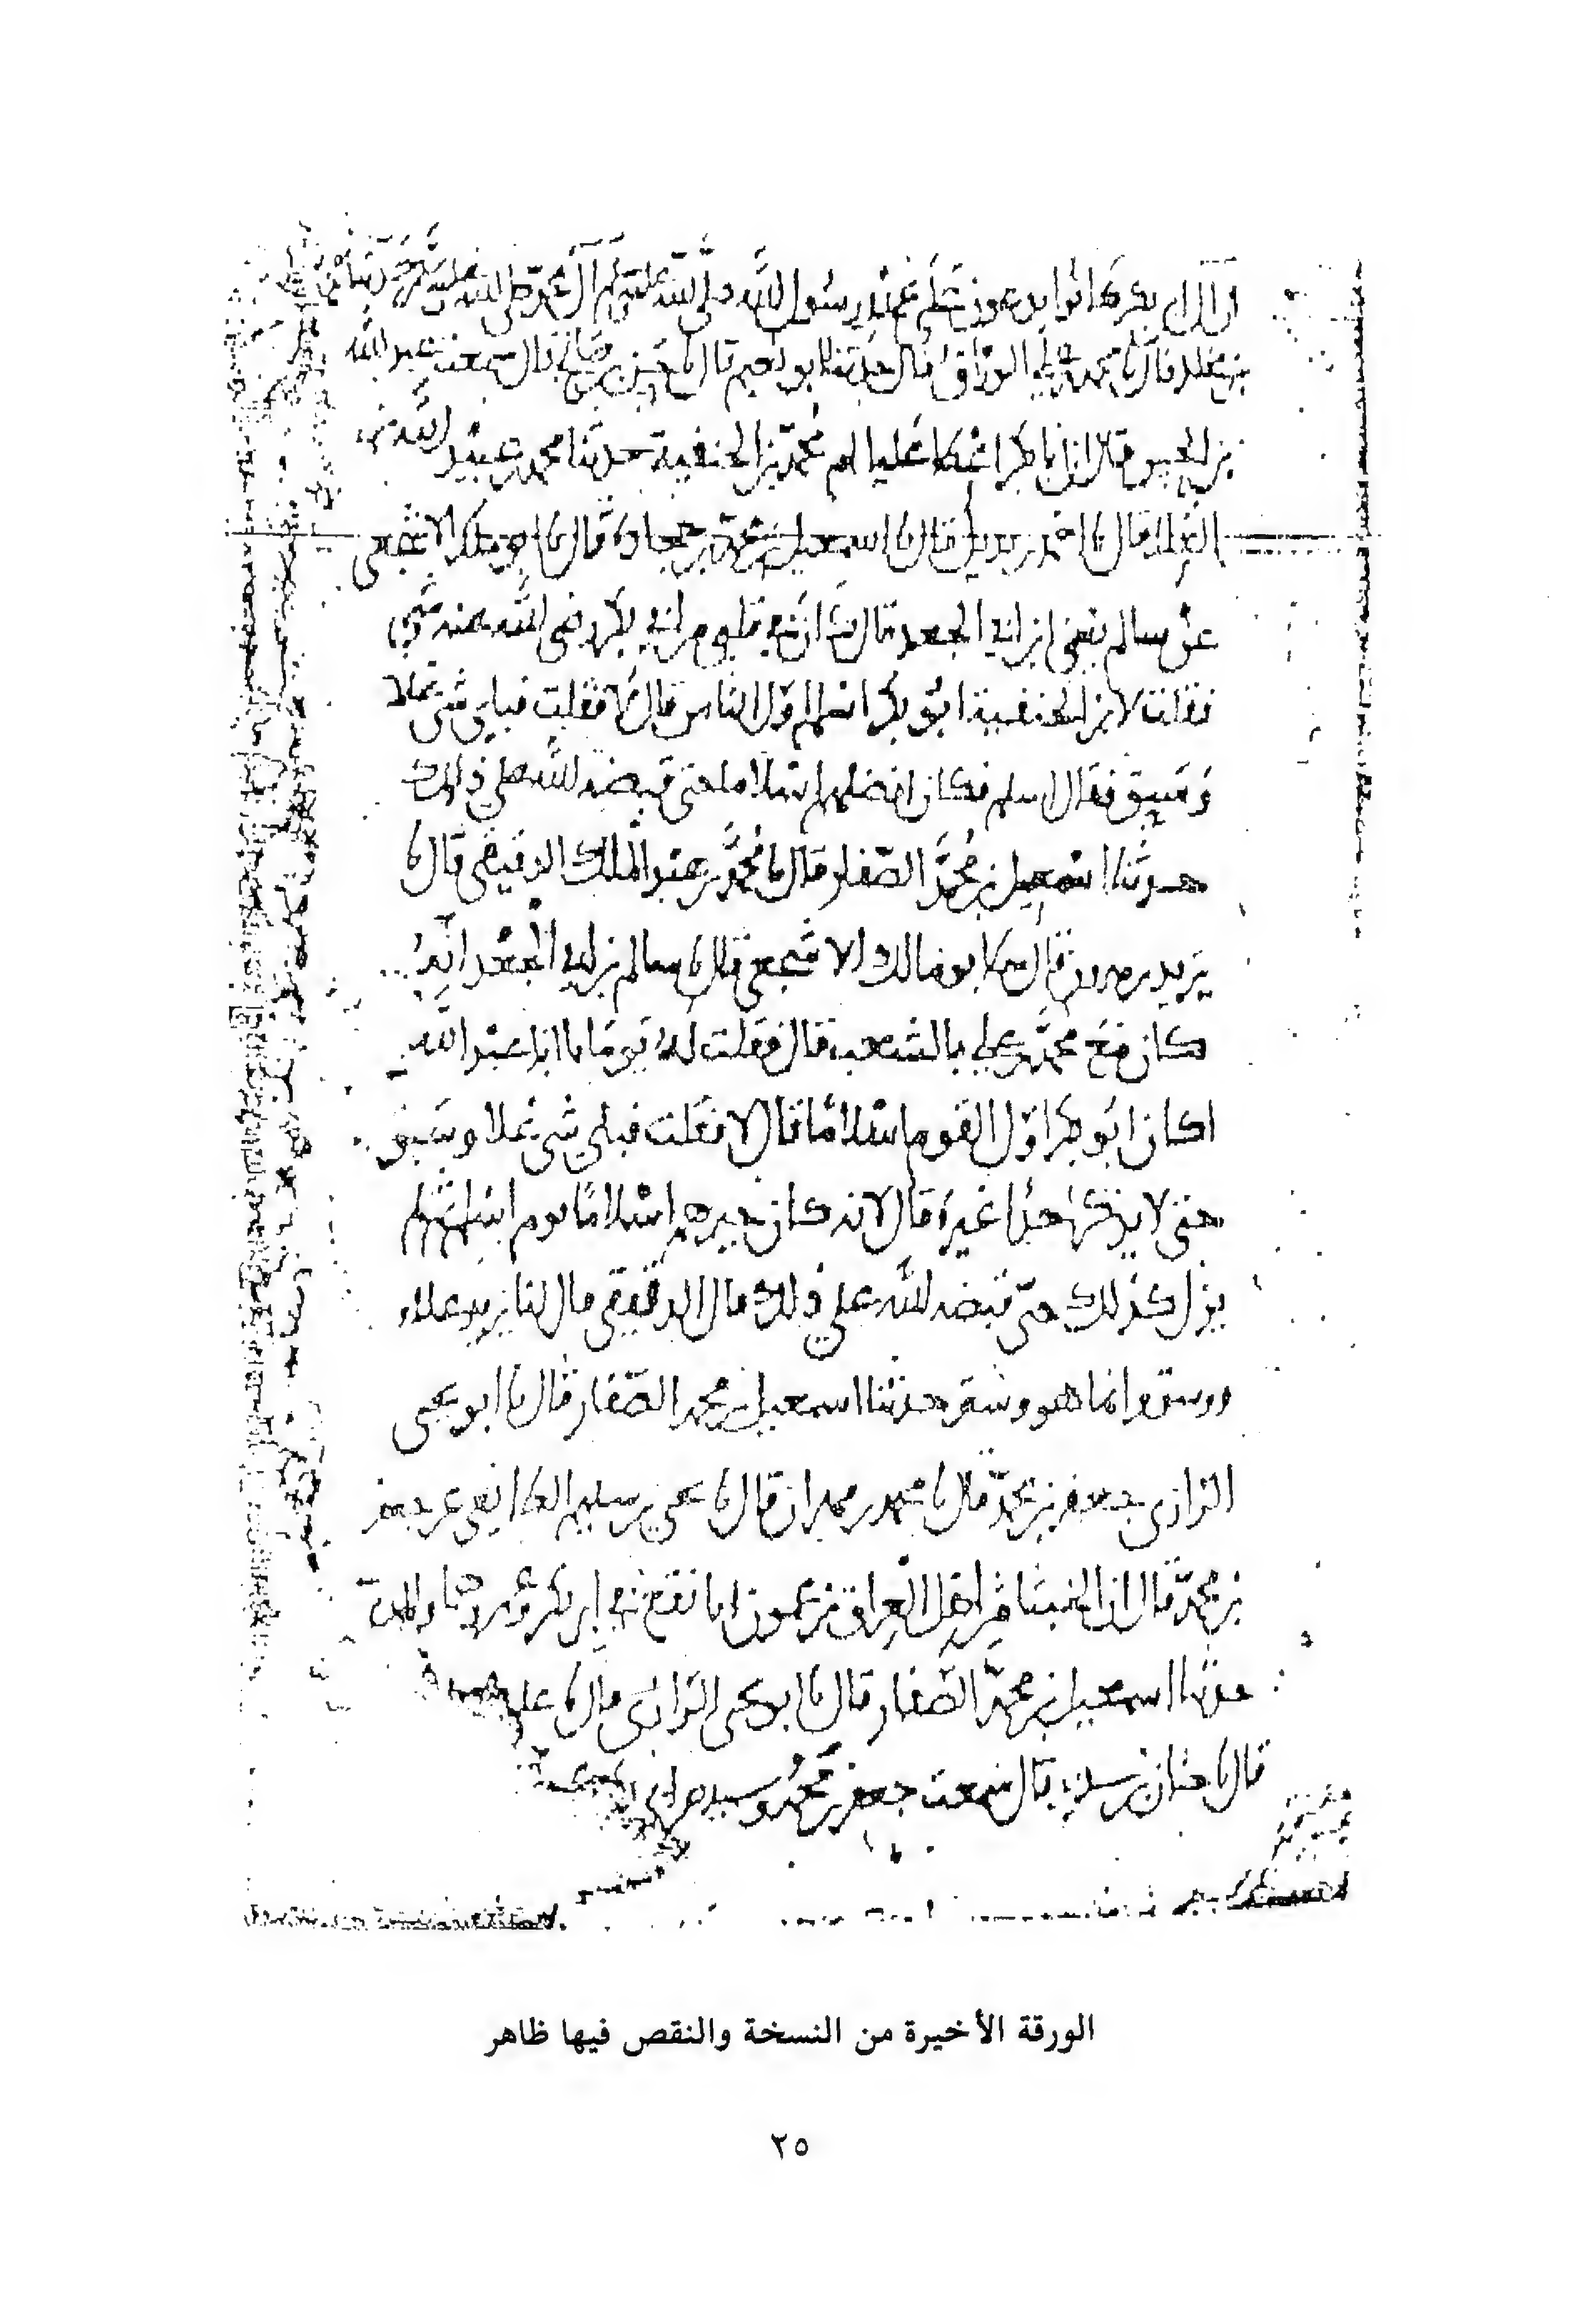 ان آل ابي بكر كانوا يدعون على عهد رسول الله صلى الله عليه وسلم آل محمد صلى الله عليه وسلم حدثنا محمد
بن مخلد قال نا محمد بن علي الوراق قال حدثنا ابو نعيم قال نا حسن بن صالح قال سمعت عبد الله
بن الحسن قال ان ابا بكر اعطا عليا ام محمد بن الحنفية حدثنا محمد بن عبيد الله بن
العلاء قال نا احمد بن بديل قال نا اسمعيل بن محمد بن جحادة قال نا ابو ملك الاشجعي
عن سالم يعني ابن ابي الجعد قال بقلوم ابي بكر رضي الله عنه شي
فقلت لابن الحنفية ابو بكر اسلم اول الناس قال لا فقلت فباي شي علا
وسبق فقال اسلم فكان افضلهم اسلاما حتى قبضه الله على ذلك
حدثنا اسمعيل بن محمد الصفار قال نا محمد بن عبد الملك الدقيقي قال نا
يزيد بن هرون قال نا ابو مالك الاشجعي قال نا سالم بن ابي الجعد انه
كان مع محمد بن علي بالشعب قال فقلت له يوما يا ابا عبد الله
اكان ابو بكر اول القوم اسلاما قال لا فقلت فباي شي علا وسبق
حتى لا يذكر احدا غيره قال لانه كان خيرهم اسلاما يوم اسلم ثم لم
يزل كذلك حتى قبضه الله على ذلك قال الدقيقي قال لنا يزيد علا
ووسق وانما هو وسبق حدثنا اسمعيل بن محمد الصفار قال نا ابو يحيى
الرازي جعفر بن محمد قال نا محمد بن مهران قال نا يحيى بن سليم الطايفي عن جعفر
بن محمد قال ان الخبثا من اهل العراق يزعمون انا نقع في ابي بكر وعمر وهما والداي
حدثنا اسمعيل بن محمد الصفار قال نا ابو يحيى الرازي قال نا علي
قال نا حنان بن سدير قال سمعت جعفر بن محمد وسيل عن ابي
الورقة الأخيرة من النسخة والنقص فيها ظاهر
٢٥